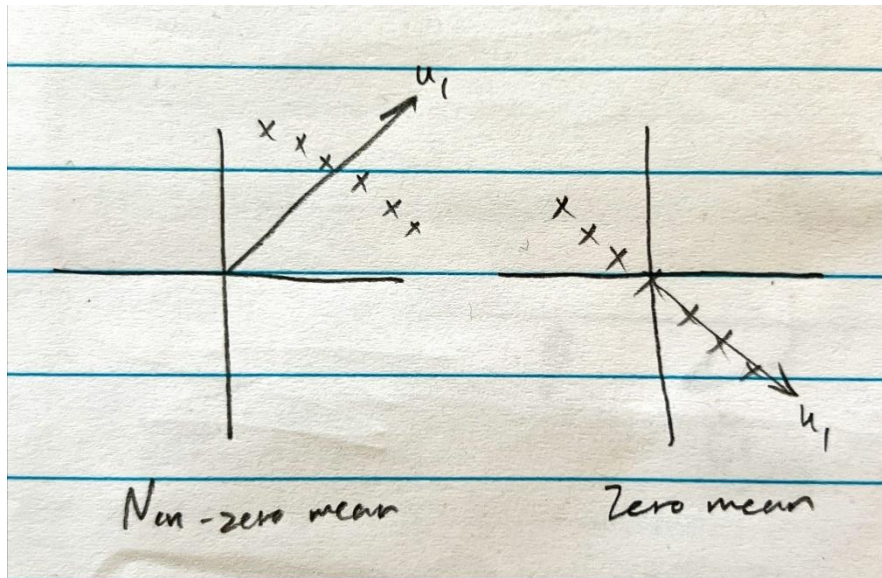 u₁
Non-zero mean
u₁
Zero mean